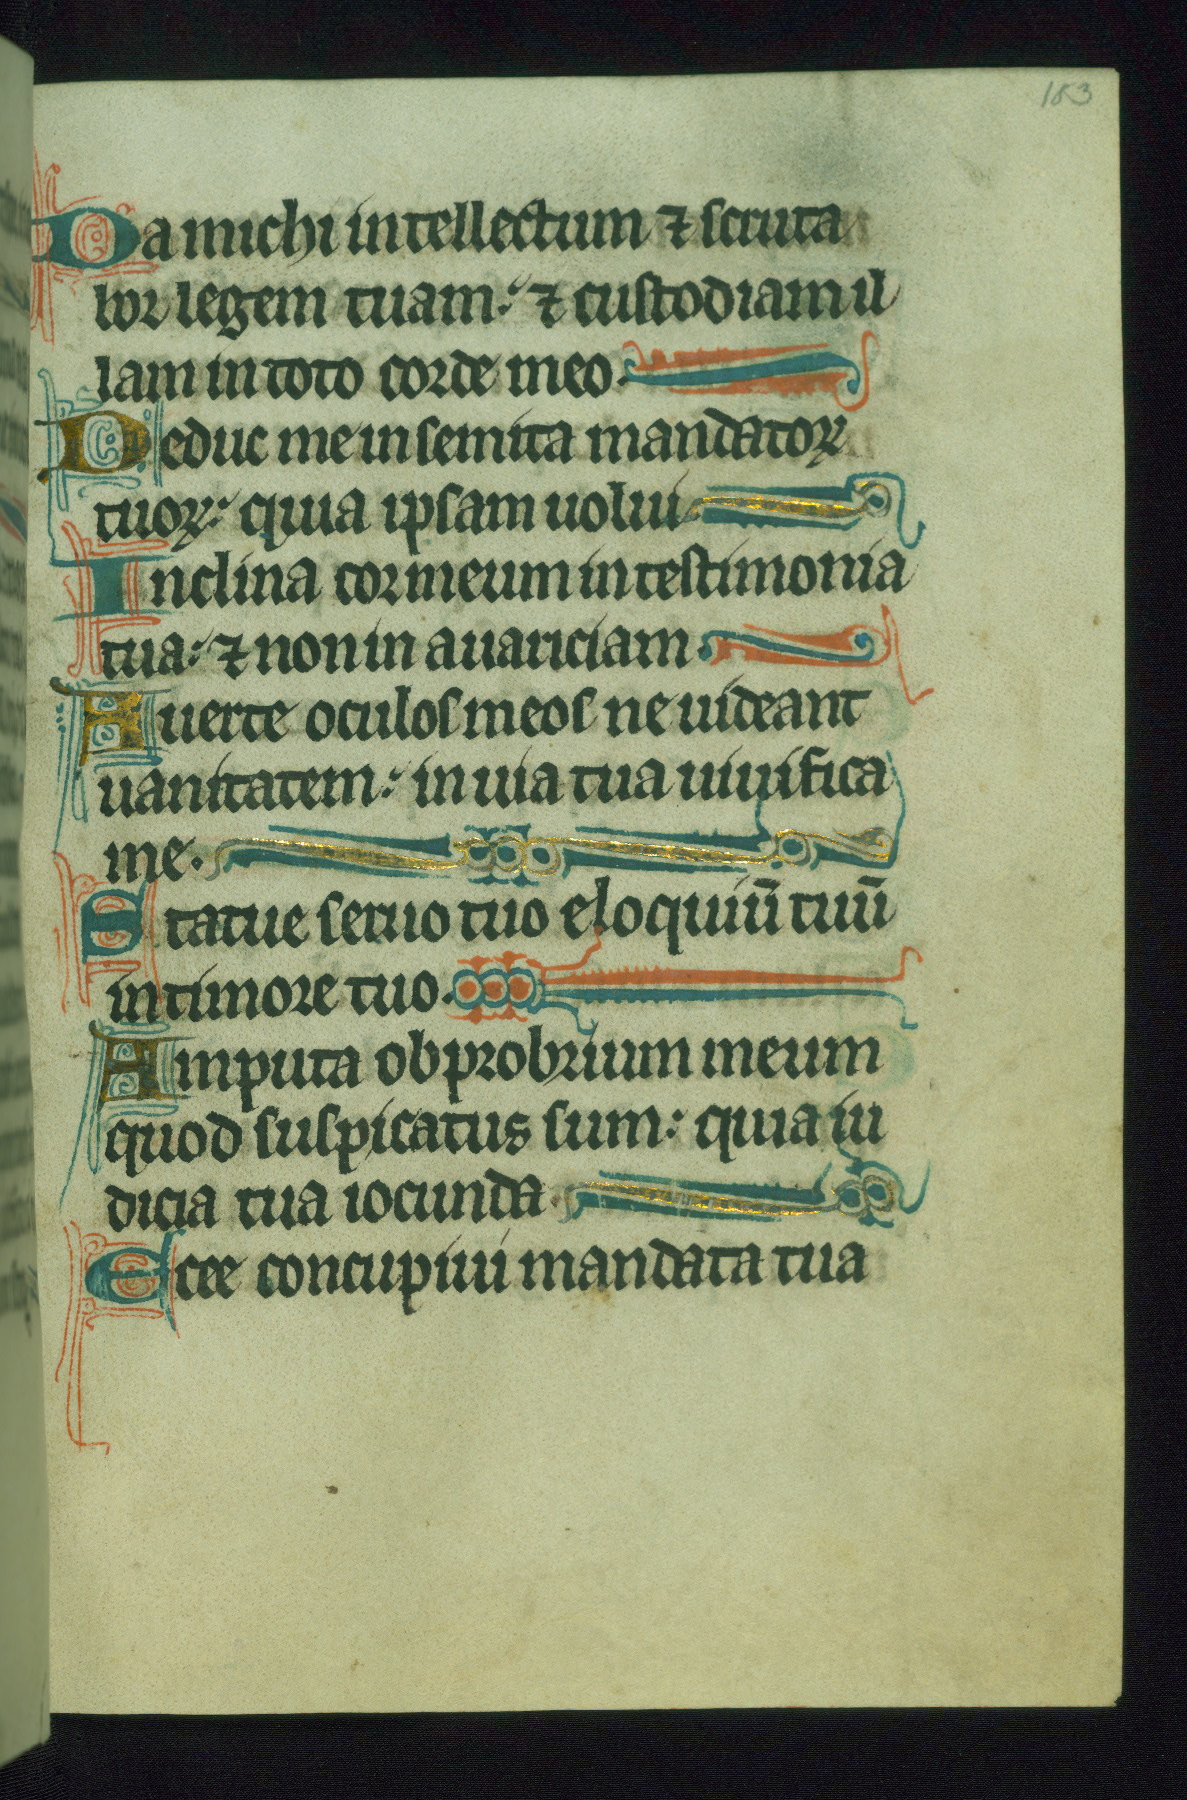 183
Da michi intellectum ⁊ scruta
bor legem tuam: ⁊ custodiam il
lam in toto corde meo.
Deduc me in semita mandatoꝝ
tuoꝝ: quia ipsam uolui.
Inclina cor meum in testimonia
tua: ⁊ non in auariciam.
Auerte oculos meos ne uideant
uanitatem: in uia tua uiuifica
me.
Statue seruo tuo eloquiū tuū
in timore tuo.
Amputa obprobrium meum
quod suspicatus sum: quia iu
dicia tua iocunda.
Ecce concupiui mandata tua